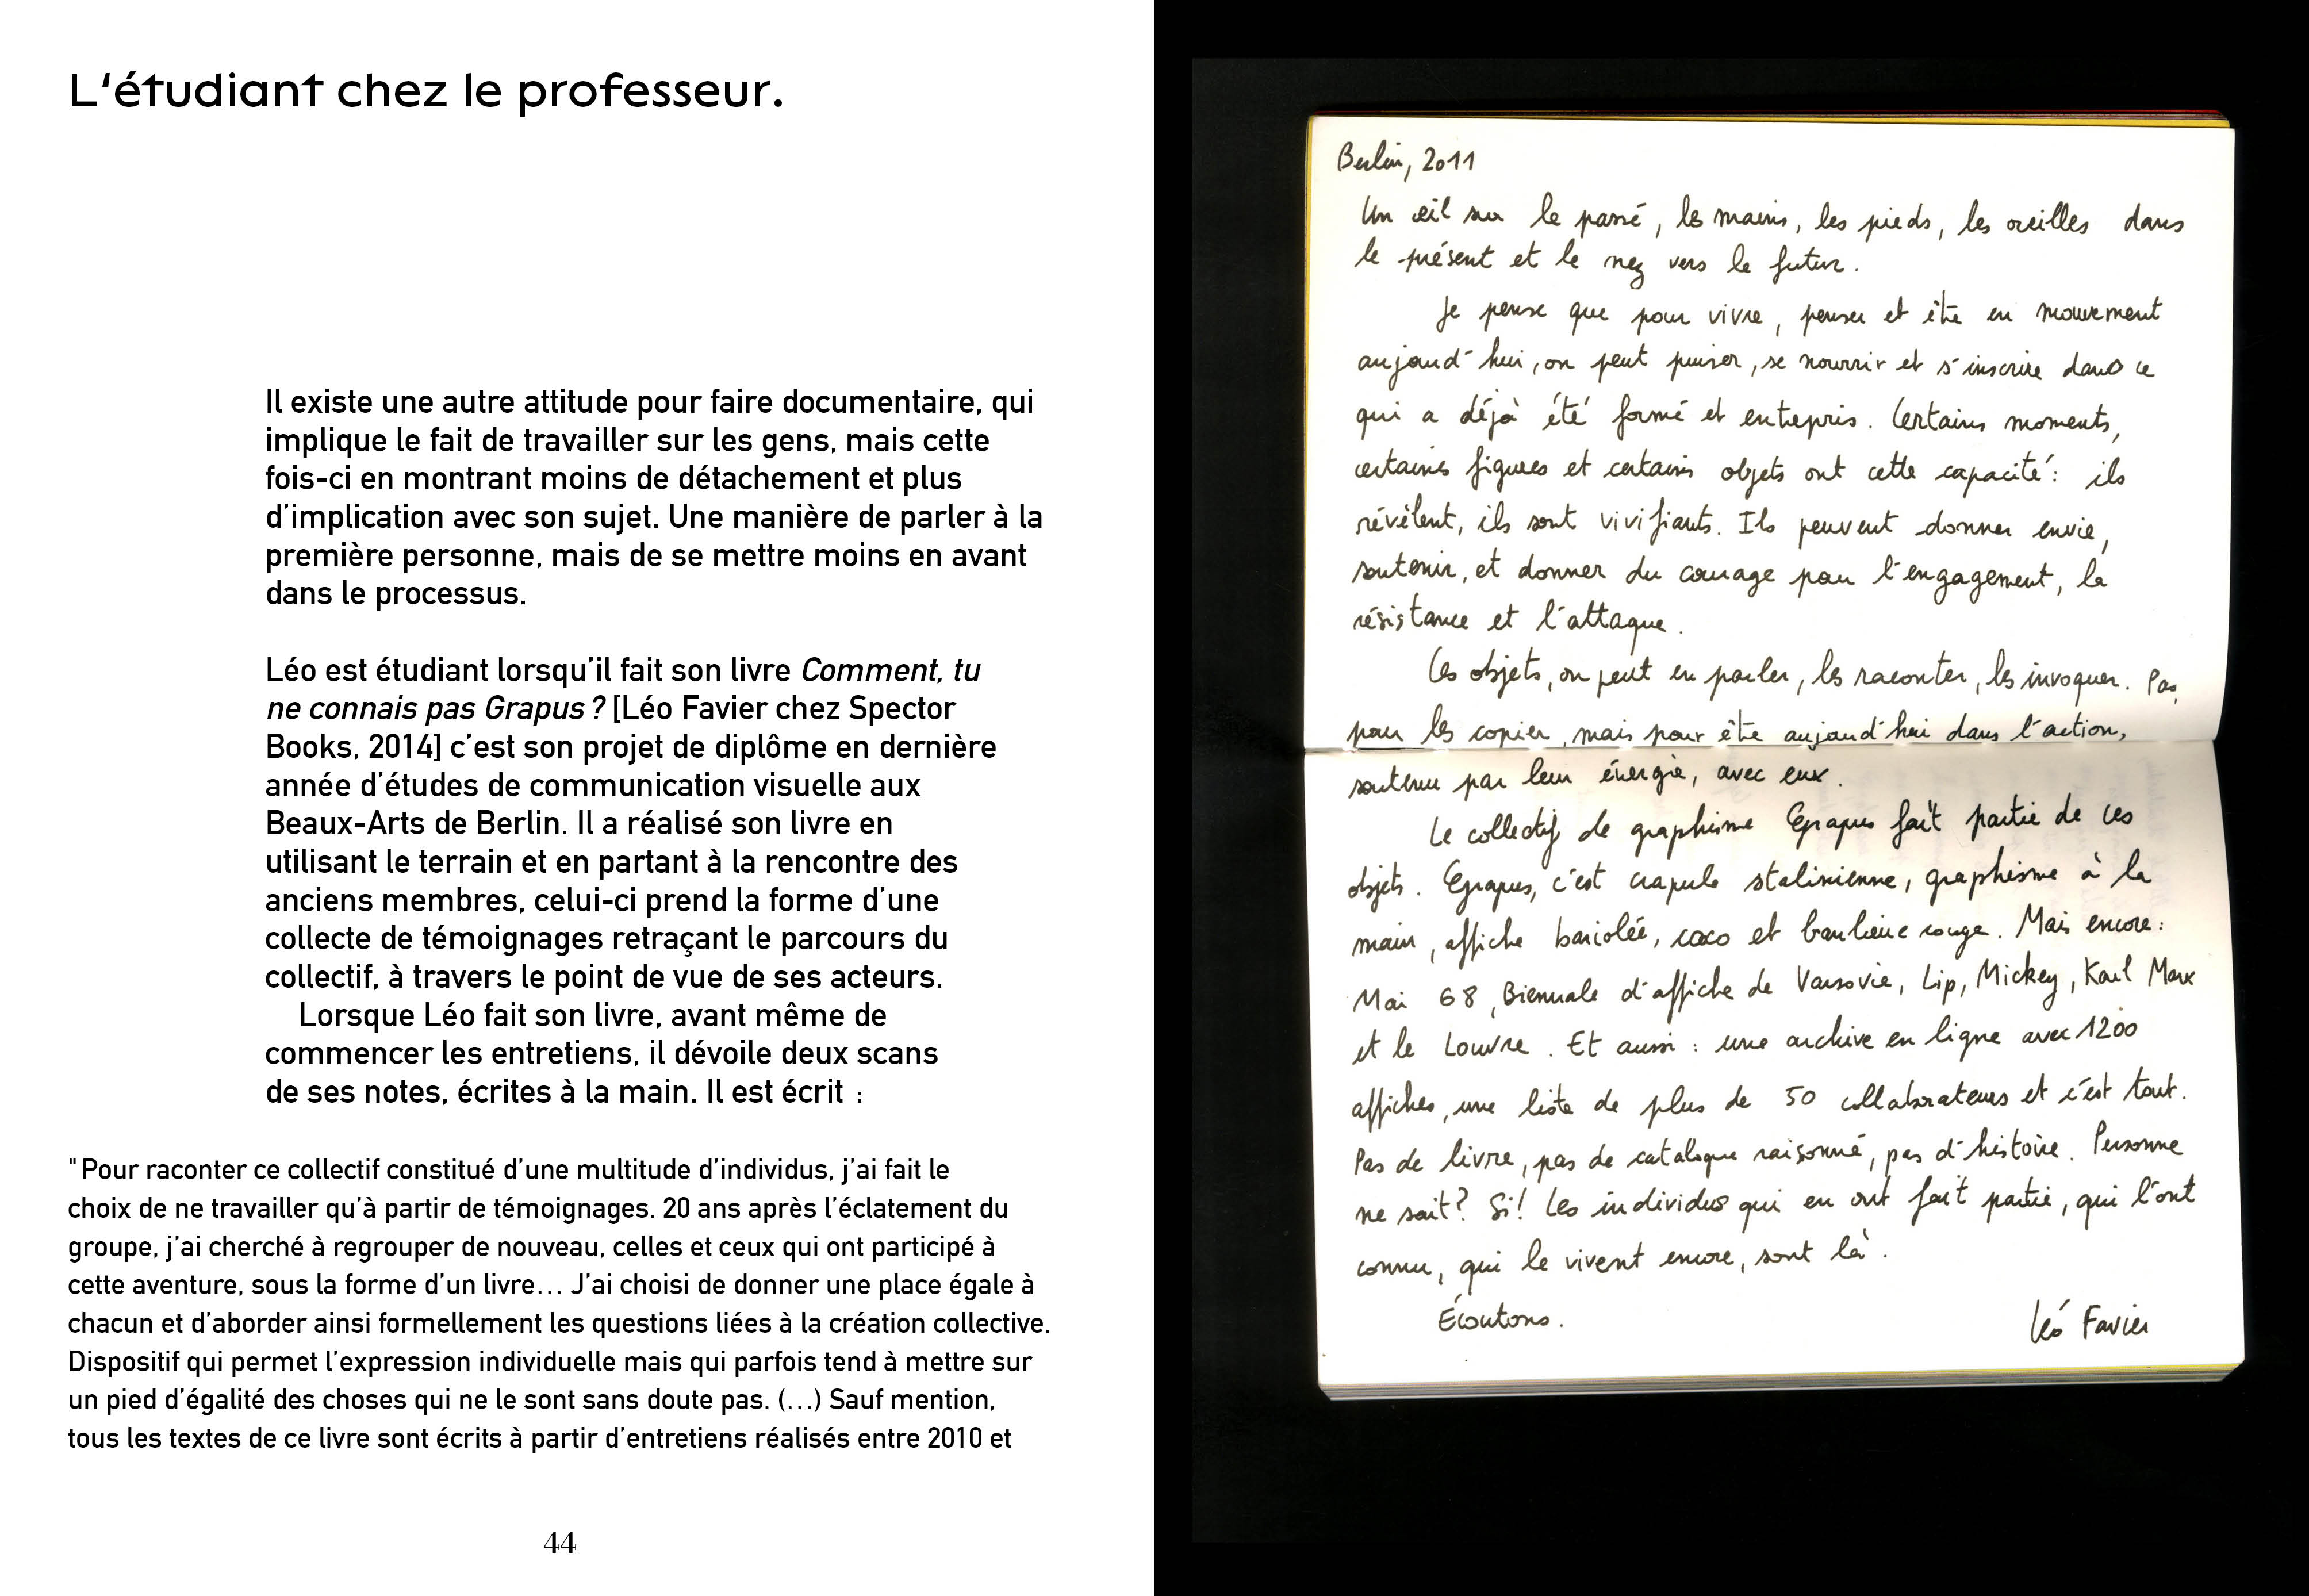 L'étudiant chez le professeur.
Il existe une autre attitude pour faire documentaire, qui
implique le fait de travailler sur les gens, mais cette
fois-ci en montrant moins de détachement et plus
d'implication avec son sujet. Une manière de parler à la
première personne, mais de se mettre moins en avant
dans le processus.
Léo est étudiant lorsqu'il fait son livre Comment, tu
ne connais pas Grapus ? [Léo Favier chez Spector
Books, 2014] c'est son projet de diplôme en dernière
année d'études de communication visuelle aux
Beaux-Arts de Berlin. Il a réalisé son livre en
utilisant le terrain et en partant à la rencontre des
anciens membres, celui-ci prend la forme d'une
collecte de témoignages retraçant le parcours du
collectif, à travers le point de vue de ses acteurs.
Lorsque Léo fait son livre, avant même de
commencer les entretiens, il dévoile deux scans
de ses notes, écrites à la main. Il est écrit :
" Pour raconter ce collectif constitué d'une multitude d'individus, j'ai fait le
choix de ne travailler qu'à partir de témoignages. 20 ans après l'éclatement du
groupe, j'ai cherché à regrouper de nouveau, celles et ceux qui ont participé à
cette aventure, sous la forme d'un livre... J'ai choisi de donner une place égale à
chacun et d'aborder ainsi formellement les questions liées à la création collective.
Dispositif qui permet l'expression individuelle mais qui parfois tend à mettre sur
un pied d'égalité des choses qui ne le sont sans doute pas. (...) Sauf mention,
tous les textes de ce livre sont écrits à partir d'entretiens réalisés entre 2010 et
44
Berlin, 2011
Un œil sur le passé, les mains, les pieds, les oreilles dans
le présent et le nez vers le futur.
Je pense que pour vivre, penser et être en mouvement
aujourd'hui, on peut puiser, se nourrir et s'inscrire dans ce
qui a déjà été formé et entrepris. Certains moments,
certaines figures et certains objets ont cette capacité : ils
révèlent, ils sont vivifiants. Ils peuvent donner envie,
soutenir, et donner du courage pour l'engagement, la
résistance et l'attaque.
Ces objets, on peut en parler, les raconter, les invoquer. Pas
pour les copier, mais pour être aujourd'hui dans l'action,
soutenu par leur énergie, avec eux.
Le collectif de graphisme Grapus fait partie de ces
objets. Grapus, c'est crapule stalinienne, graphisme à la
main, affiche bariolée, coco et banlieue rouge. Mais encore :
Mai 68, Biennale d'affiche de Varsovie, Lip, Mickey, Karl Marx
et le Louvre. Et aussi : une archive en ligne avec 1200
affiches, une liste de plus de 50 collaborateurs et c'est tout.
Pas de livre, pas de catalogue raisonné, pas d'histoire. Personne
ne sait? Si! Les individus qui en ont fait partie, qui l'ont
connu, qui le vivent encore, sont là.
Écoutons.
Léo Favier